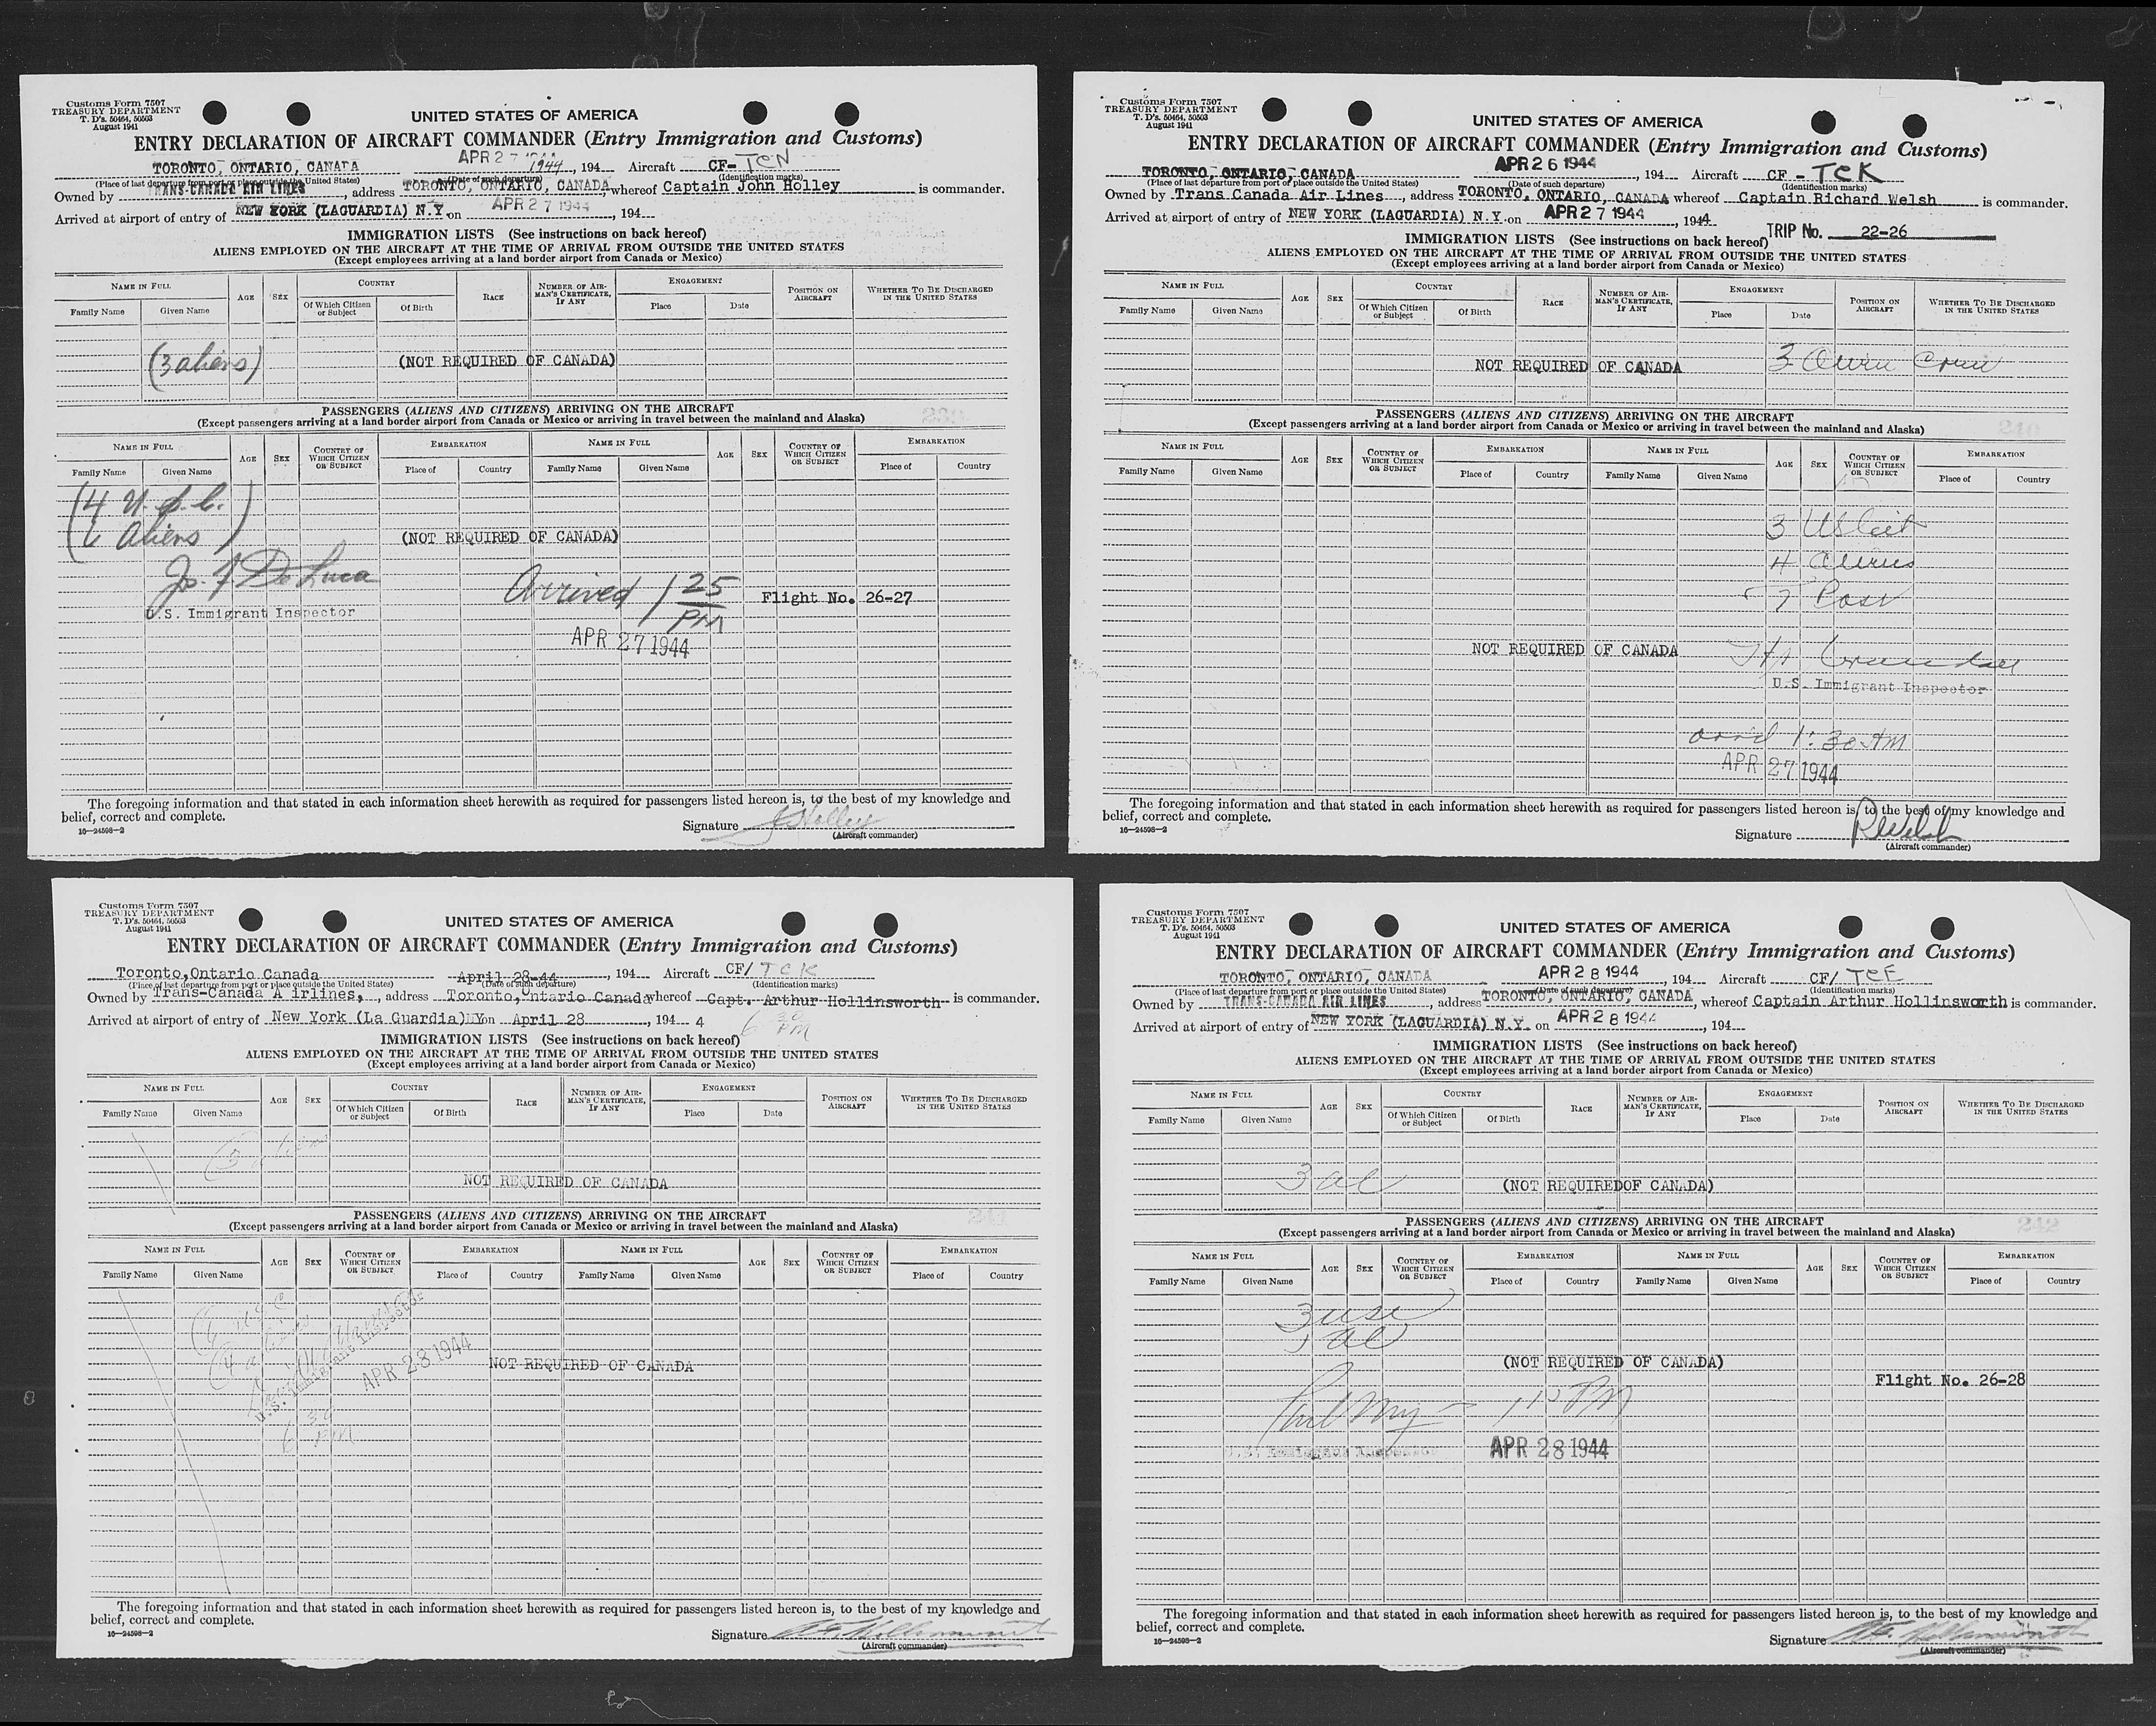 Customs Form 7507
TREASURY DEPARTMENT
T. D's. 50464, 50503
August 1941
UNITED STATES OF AMERICA
ENTRY DECLARATION OF AIRCRAFT COMMANDER (Entry Immigration and Customs)
TORONTO, ONTARIO, CANADA APR 27 1944, 194 Aircraft CF-TCN
(Place of last departure from port or place outside the United States) (Date of such departure) (Identification marks)
Owned by TRANS-CANADA AIR LINES, address TORONTO, ONTARIO, CANADA, whereof Captain John Holley is commander.
Arrived at airport of entry of NEW YORK (LAGUARDIA) N.Y. on APR 27 1944, 194
IMMIGRATION LISTS (See instructions on back hereof)
ALIENS EMPLOYED ON THE AIRCRAFT AT THE TIME OF ARRIVAL FROM OUTSIDE THE UNITED STATES
(Except employees arriving at a land border airport from Canada or Mexico)
NAME IN FULL AGE SEX COUNTRY RACE NUMBER OF AIRMAN'S CERTIFICATE, IF ANY ENGAGEMENT POSITION ON AIRCRAFT WHETHER TO BE DISCHARGED IN THE UNITED STATES
Family Name Given Name Of Which Citizen or Subject Of Birth Place Date
(3 aliens) (NOT REQUIRED OF CANADA)
PASSENGERS (ALIENS AND CITIZENS) ARRIVING ON THE AIRCRAFT
(Except passengers arriving at a land border airport from Canada or Mexico or arriving in travel between the mainland and Alaska)
NAME IN FULL AGE SEX COUNTRY OF WHICH CITIZEN OR SUBJECT EMBARKATION NAME IN FULL AGE SEX COUNTRY OF WHICH CITIZEN OR SUBJECT EMBARKATION
Family Name Given Name Place of Country Family Name Given Name Place of Country
(4 U.S.C.
6 Aliens)
(NOT REQUIRED OF CANADA)
Jo. F. De Luca
U.S. Immigrant Inspector
Arrived 1 25 PM
Flight No. 26-27
APR 27 1944
The foregoing information and that stated in each information sheet herewith as required for passengers listed hereon is, to the best of my knowledge and
belief, correct and complete.
16—24598-2
Signature J Holley
(Aircraft commander)
Customs Form 7507
TREASURY DEPARTMENT
T. D's. 50464, 50503
August 1941
UNITED STATES OF AMERICA
ENTRY DECLARATION OF AIRCRAFT COMMANDER (Entry Immigration and Customs)
TORONTO, ONTARIO, CANADA APR 26 1944, 194 Aircraft CF-TCK
(Place of last departure from port or place outside the United States) (Date of such departure) (Identification marks)
Owned by Trans Canada Air Lines, address TORONTO, ONTARIO, CANADA whereof Captain Richard Welsh is commander.
Arrived at airport of entry of NEW YORK (LAGUARDIA) N.Y. on APR 27 1944, 1944
TRIP No. 22-26
IMMIGRATION LISTS (See instructions on back hereof)
ALIENS EMPLOYED ON THE AIRCRAFT AT THE TIME OF ARRIVAL FROM OUTSIDE THE UNITED STATES
(Except employees arriving at a land border airport from Canada or Mexico)
NAME IN FULL AGE SEX COUNTRY RACE NUMBER OF AIRMAN'S CERTIFICATE, IF ANY ENGAGEMENT POSITION ON AIRCRAFT WHETHER TO BE DISCHARGED IN THE UNITED STATES
Family Name Given Name Of Which Citizen or Subject Of Birth Place Date
NOT REQUIRED OF CANADA 3 Alien Crew
PASSENGERS (ALIENS AND CITIZENS) ARRIVING ON THE AIRCRAFT
(Except passengers arriving at a land border airport from Canada or Mexico or arriving in travel between the mainland and Alaska)
240
NAME IN FULL AGE SEX COUNTRY OF WHICH CITIZEN OR SUBJECT EMBARKATION NAME IN FULL AGE SEX COUNTRY OF WHICH CITIZEN OR SUBJECT EMBARKATION
Family Name Given Name Place of Country Family Name Given Name Place of Country
3 US Cit
4 Aliens
7 Pass
NOT REQUIRED OF CANADA
U.S. Immigrant Inspector
arrd 1:30 AM
APR 27 1944
The foregoing information and that stated in each information sheet herewith as required for passengers listed hereon is, to the best of my knowledge and
belief, correct and complete.
16—24598-2
Signature R Welsh
(Aircraft commander)
Customs Form 7507
TREASURY DEPARTMENT
T. D's. 50464, 50503
August 1941
UNITED STATES OF AMERICA
ENTRY DECLARATION OF AIRCRAFT COMMANDER (Entry Immigration and Customs)
Toronto, Ontario Canada April 28-44, 194 Aircraft CF/TCK
(Place of last departure from port or place outside the United States) (Date of such departure) (Identification marks)
Owned by Trans-Canada A irlines, address Toronto, Ontario Canada whereof Capt. Arthur Hollinsworth is commander.
Arrived at airport of entry of New York (La Guardia) NY on April 28, 194 4 6 30 PM
IMMIGRATION LISTS (See instructions on back hereof)
ALIENS EMPLOYED ON THE AIRCRAFT AT THE TIME OF ARRIVAL FROM OUTSIDE THE UNITED STATES
(Except employees arriving at a land border airport from Canada or Mexico)
NAME IN FULL AGE SEX COUNTRY RACE NUMBER OF AIRMAN'S CERTIFICATE, IF ANY ENGAGEMENT POSITION ON AIRCRAFT WHETHER TO BE DISCHARGED IN THE UNITED STATES
Family Name Given Name Of Which Citizen or Subject Of Birth Place Date
(3 aliens
NOT REQUIRED OF CANADA
PASSENGERS (ALIENS AND CITIZENS) ARRIVING ON THE AIRCRAFT
(Except passengers arriving at a land border airport from Canada or Mexico or arriving in travel between the mainland and Alaska)
241
NAME IN FULL AGE SEX COUNTRY OF WHICH CITIZEN OR SUBJECT EMBARKATION NAME IN FULL AGE SEX COUNTRY OF WHICH CITIZEN OR SUBJECT EMBARKATION
Family Name Given Name Place of Country Family Name Given Name Place of Country
(4 aliens
U.S. Immigrant Inspector
APR 28 1944
NOT REQUIRED OF CANADA
6 30 PM
The foregoing information and that stated in each information sheet herewith as required for passengers listed hereon is, to the best of my knowledge and
belief, correct and complete.
16—24598-2
Signature Hollinsworth
(Aircraft commander)
Customs Form 7507
TREASURY DEPARTMENT
T. D's. 50464, 50503
August 1941
UNITED STATES OF AMERICA
ENTRY DECLARATION OF AIRCRAFT COMMANDER (Entry Immigration and Customs)
TORONTO, ONTARIO, CANADA APR 28 1944, 194 Aircraft CF/TCE
(Place of last departure from port or place outside the United States) (Date of such departure) (Identification marks)
Owned by TRANS-CANADA AIR LINES, address TORONTO, ONTARIO, CANADA, whereof Captain Arthur Hollinsworth is commander.
Arrived at airport of entry of NEW YORK (LAGUARDIA) N.Y. on APR 28 1944, 194
IMMIGRATION LISTS (See instructions on back hereof)
ALIENS EMPLOYED ON THE AIRCRAFT AT THE TIME OF ARRIVAL FROM OUTSIDE THE UNITED STATES
(Except employees arriving at a land border airport from Canada or Mexico)
NAME IN FULL AGE SEX COUNTRY RACE NUMBER OF AIRMAN'S CERTIFICATE, IF ANY ENGAGEMENT POSITION ON AIRCRAFT WHETHER TO BE DISCHARGED IN THE UNITED STATES
Family Name Given Name Of Which Citizen or Subject Of Birth Place Date
3 al (NOT REQUIREDOF CANADA)
PASSENGERS (ALIENS AND CITIZENS) ARRIVING ON THE AIRCRAFT
(Except passengers arriving at a land border airport from Canada or Mexico or arriving in travel between the mainland and Alaska)
242
NAME IN FULL AGE SEX COUNTRY OF WHICH CITIZEN OR SUBJECT EMBARKATION NAME IN FULL AGE SEX COUNTRY OF WHICH CITIZEN OR SUBJECT EMBARKATION
Family Name Given Name Place of Country Family Name Given Name Place of Country
3 usc
al
(NOT REQUIRED OF CANADA)
Flight No. 26-28
PM
U.S. Immigrant Inspector
APR 28 1944
The foregoing information and that stated in each information sheet herewith as required for passengers listed hereon is, to the best of my knowledge and
belief, correct and complete.
16—24598-2
Signature Hollinsworth
(Aircraft commander)